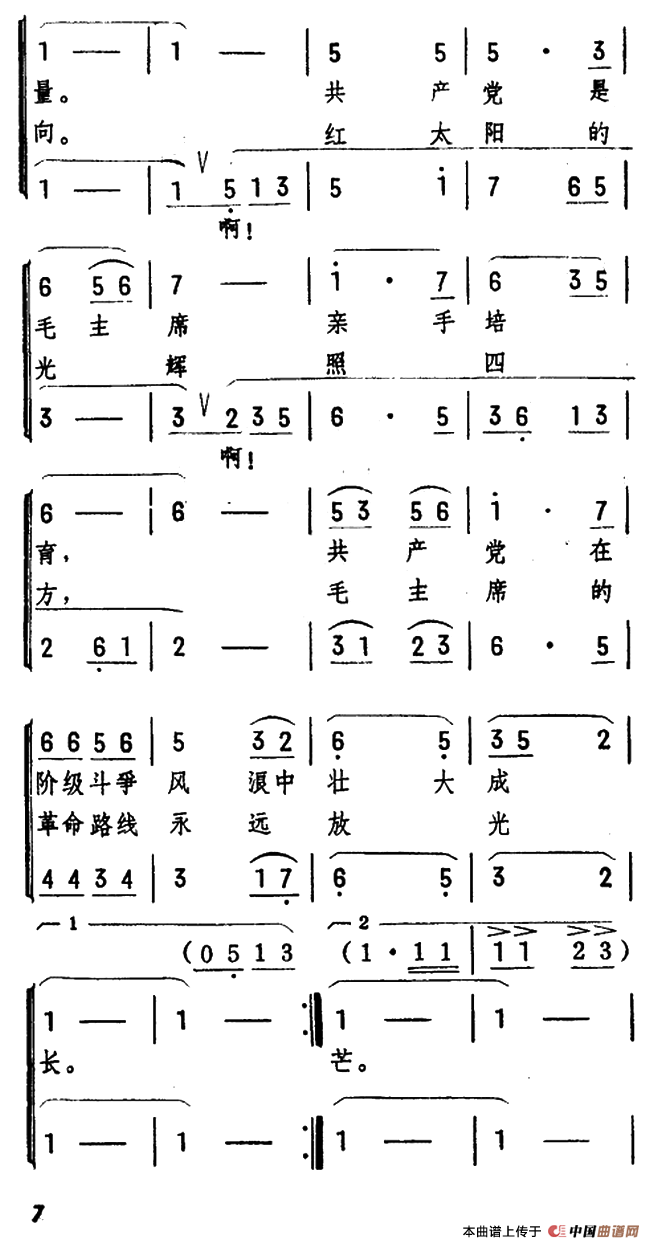 1 — | 1 — | 5 5 | 5 · 3 |
量。 共 产 党 是
向。 红 太 阳 的
1 — | 1 5 1 3 | 5 1 | 7 6 5 |
啊!
6 5 6 | 7 — | 1 · 7 | 6 3 5 |
毛 主 席 亲 手 培
光 辉 照 四
3 — | 3 2 3 5 | 6 · 5 | 3 6 1 3 |
啊!
6 — | 6 — | 5 3 5 6 | 1 · 7 |
育, 共 产 党 在
方, 毛 主 席 的
2 6 1 | 2 — | 3 1 2 3 | 6 · 5 |
6 6 5 6 | 5 3 2 | 6 5 | 3 5 2 |
阶级斗爭 风 浪中 壮 大 成
革命路线 永 远 放 光
4 4 3 4 | 3 1 7 | 6 5 | 3 2 |
1 2
(0 5 1 3 (1 · 1 1 | 1 1 2 3)
1 — | 1 — :| 1 — | 1 — |
长。 芒。
1 — | 1 — :| 1 — | 1 — |
7
本曲谱上传于 中国曲谱网